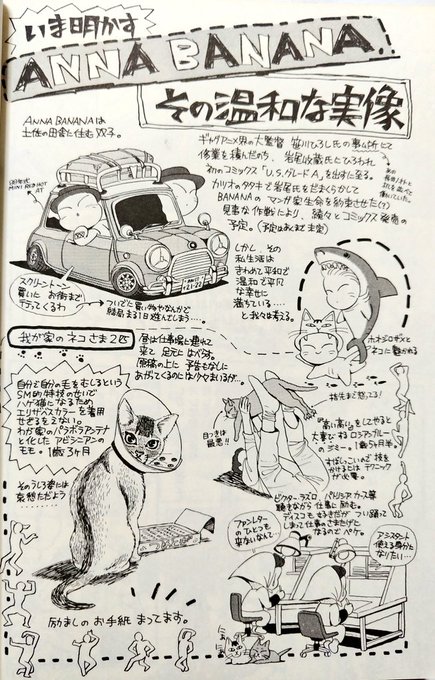 いま明かす
ANNA BANANA
その温和な実像
ANNA BANANAは
土佐の田舎に住む双子。
ギャグアニメ界の大監督 笹川ひろし氏の事ム所にて
修業を積んだのち、岩尾收蔵氏とひろわれ
初のコミックス「U.S.グレードA」を出すに至る。
カツオのタタキで岩尾氏をだまくらかして
BANANAの マンガ家生命を約束させた(?)
見事な作戦により、続々とコミックス発売の
予定。(予定はあくまで未定)
MINI RED HOT
AT
スクリントーン
買いに お街まで
行ってくるわ
ついでに買い物やなんかで
結局まる1日遊んでしまう……。
しかし、その
私生活は
きわめて平和で
温和で平凡
な幸せに
満ちている……
と我々は考える。
ホオジロザメと
アネコに襲われる
我が家のネコさま2匹
自分で自分の毛をむしるという
SM的特技のせいで
ハゲ猫になるため
エリザベスカラーを着用
せざるをえない。
わが家のパラボラアンテナ
と化した アビシニアンの
モモ。1歳3ヶ月
そのうしろ姿には
哀愁ただよう
昼は仕事場に連れて
来て 足元に はべらす。
原稿の上に 予告もなしに
あがってくるのには少々まいるが…。
目つきは
最悪!!
指先まで怒ってる!
“高い高い”をしてやると
大喜びする ロシアンブルー
の ジミー。1歳5ヶ月半。
すばしっこいので 技を
かけるには テクニック
が必要。
ビクター・ラズロ、パトリシア・カース等
聴きながら 仕事に励む。
ディスコも 好きだが つい踊って
しまって仕事のさまたげに
なるので ペケ。
ファンレター
のひとつも
来ないなんて…
アシスタント
使える身分に
なりたい…
励ましの お手紙 まってます。